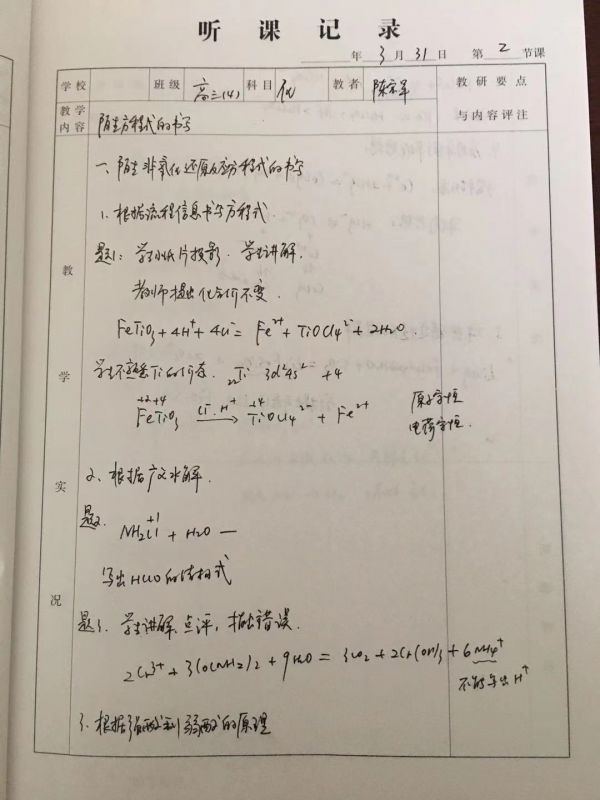 听课记录
年 3月31日 第2节课
学校 班级 高三(4) 科目 化 教者 陈宗军 教研要点
与内容评注
教学内容 陌生方程式的书写
教学实况
一、陌生非氧化还原反应方程式的书写
1、根据流程信息书写方程式
题1: 学生纸片投影、学生讲解.
老师指出化合价不变.
FeTiO3 + 4H+ + 4Cl- = Fe2+ + TiOCl4 2- + 2H2O
学生不熟悉Ti的价态. 22Ti 3d²4s² +4
+2+4 +4
FeTiO3 Cl-、H+ → TiOCl4 2- + Fe2+
原子守恒
电荷守恒.
2、根据广义水解.
题2. +1
NH2Cl + H2O —
写出HClO的结构式
题3. 学生讲解, 点评, 指出错误.
2Cr3+ + 3CO(NH2)2 + 9H2O = 3CO2 + 2Cr(OH)3 + 6NH4+
不能写出H+
3、根据强酸制弱酸的原理